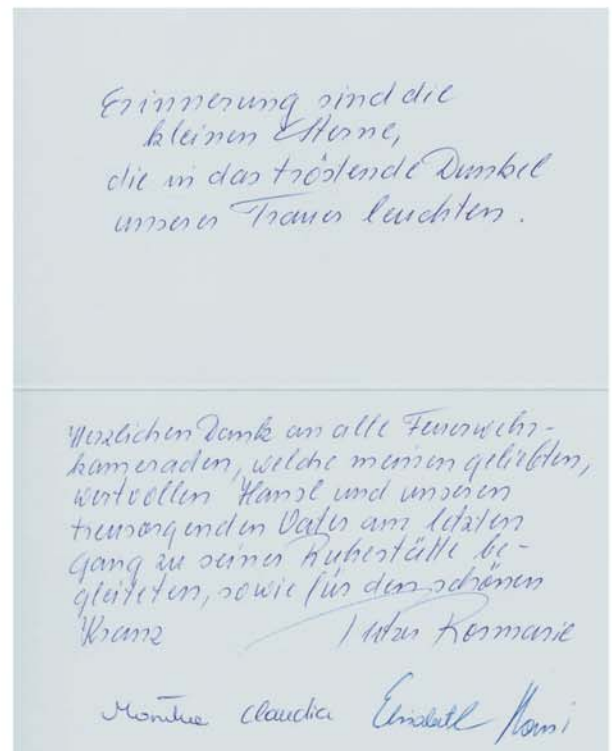 Erinnerung sind die
kleinen Sterne,
die in das tröstende Dunkel
unserer Trauer leuchten.
Herzlichen Dank an alle Feuerwehr-
kameraden, welche meinen geliebten,
wertvollen Hansl und unseren
treusorgenden Vater am letzten
Gang zu seiner Ruhestätte be-
gleiteten, sowie für den schönen
Kranz Rosmarie
Monika Claudia Elisabeth Hansi